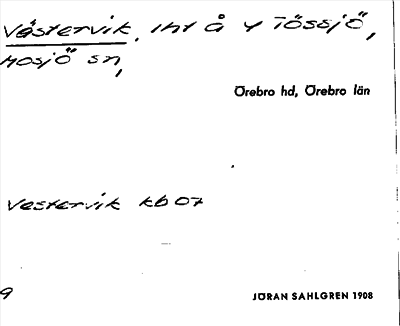 Västervik, int å 4 Tössjö,
Mosjö sn,
Örebro hd, Örebro län
Vestervik kb 07
9
JÖRAN SAHLGREN 1908